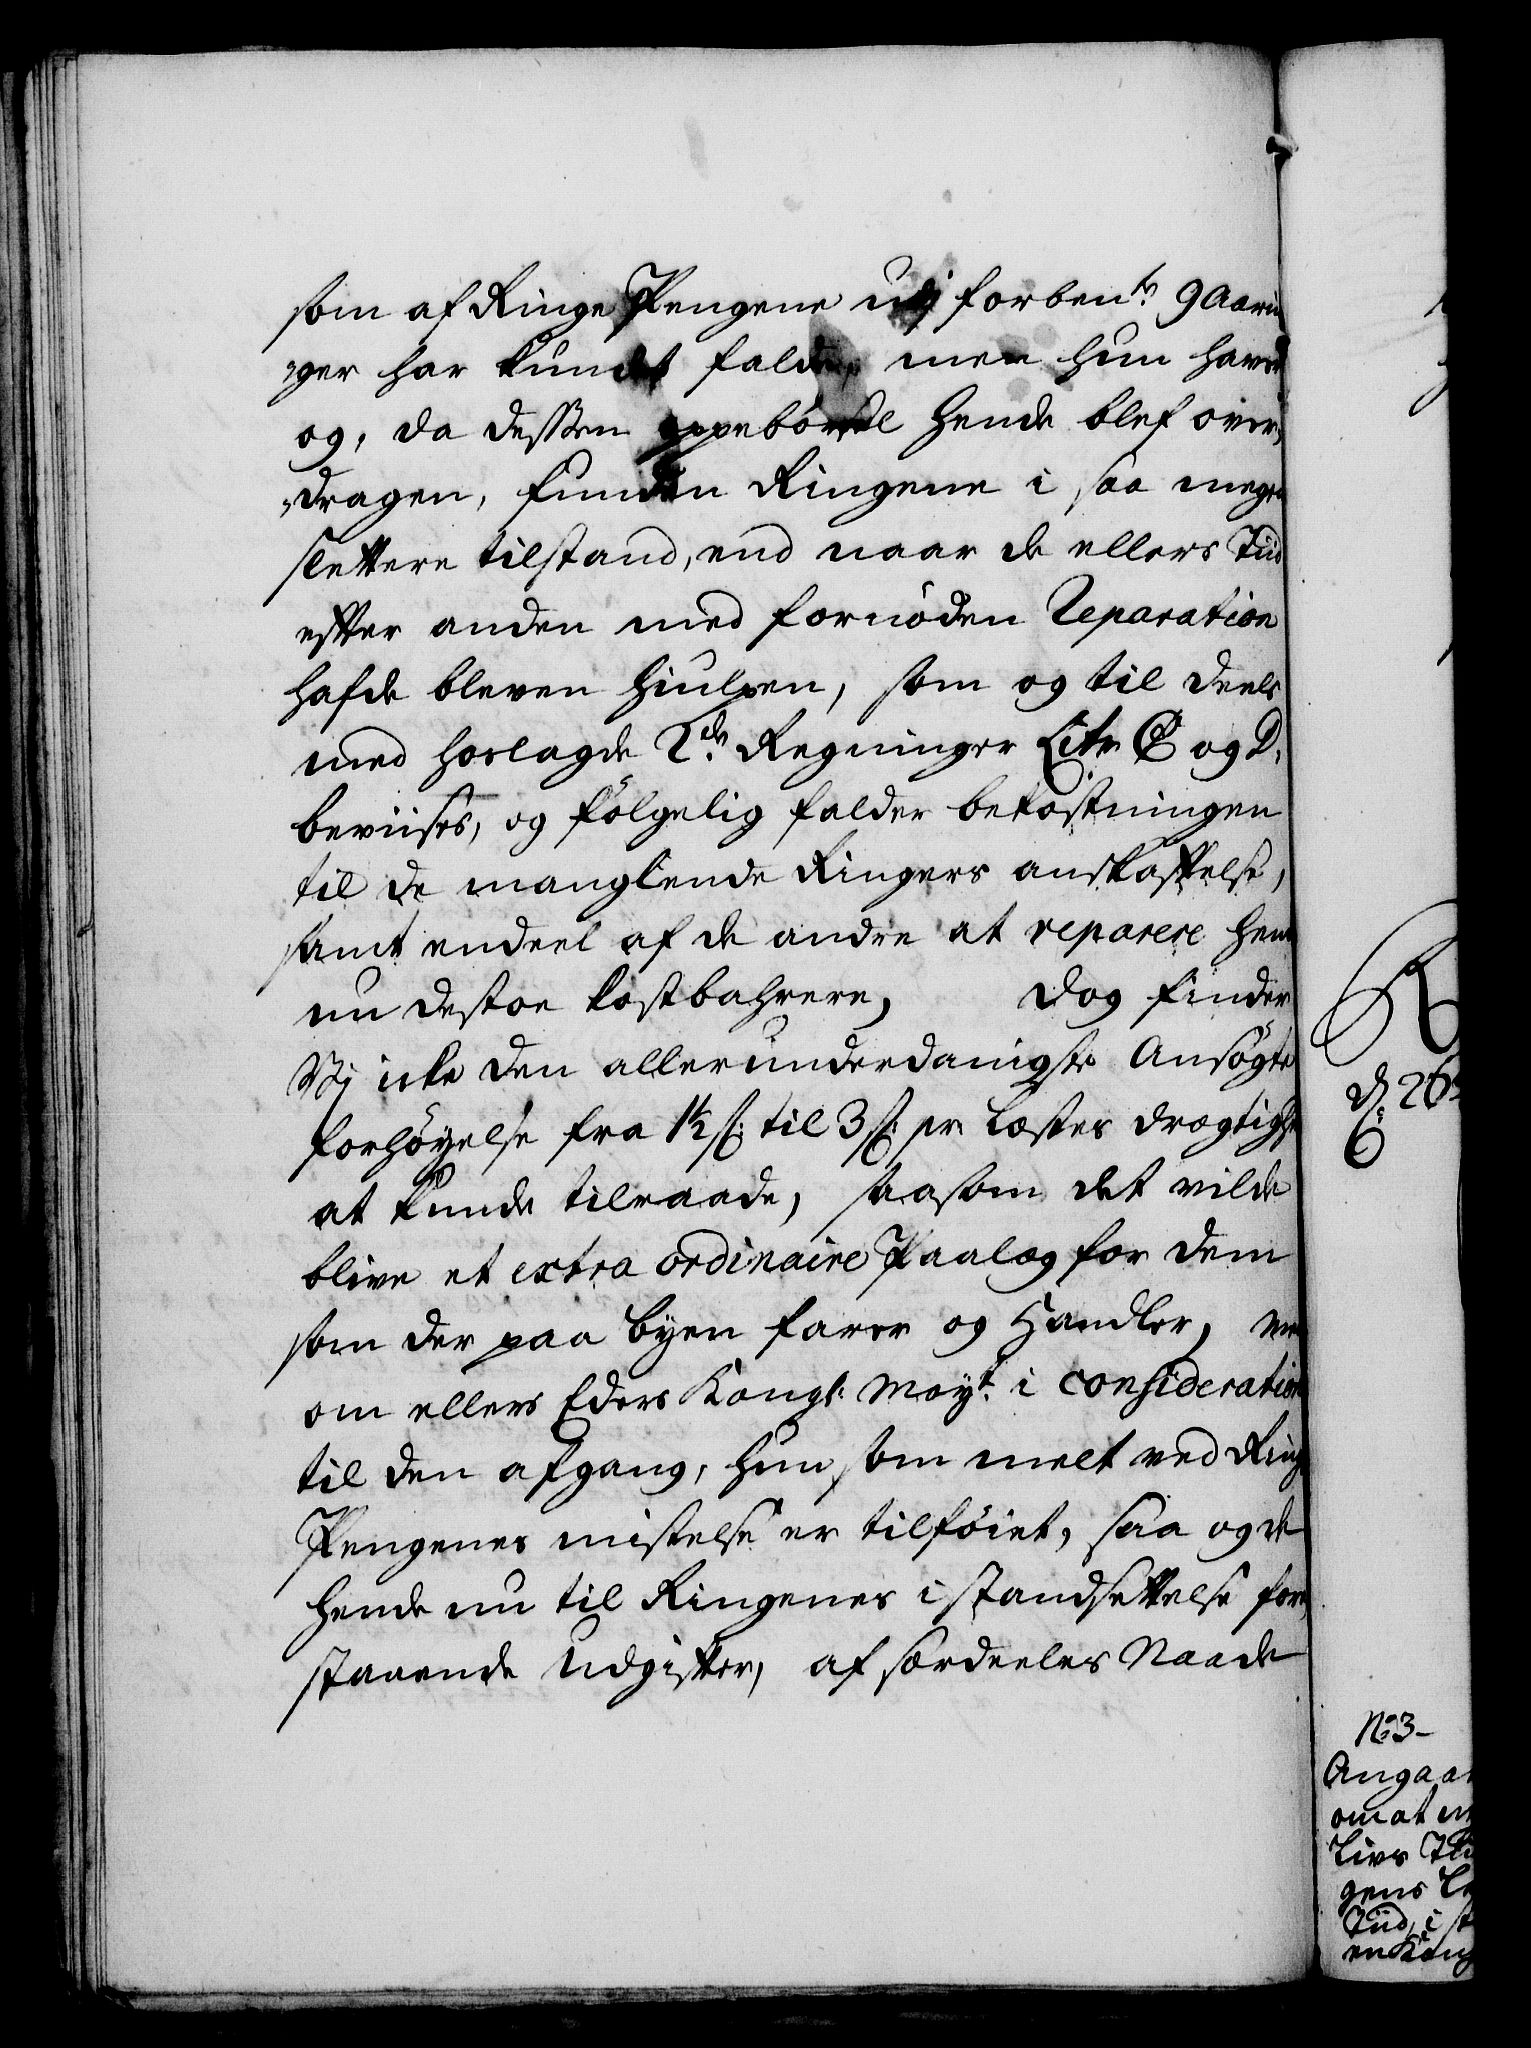 som af Ringe Pengene udj forben:te 9 Aarin
ger har kundet falde, men hun haver
og, da dessen oppebørsel hende blef over,
„dragen, funden Ringene i saa megen
slettere tilstand, end naar de ellers Tiid
efter anden med fornøden Reparation
hafde bleven hiulpen, som og til deels
med hoslagde 2de Regninger Litr C og D.
beviises, og følgelig falder bekostningen
til de manglende Ringers anskaffelse,
samt endeel af de andre at reparere hende
nu desto kostbahrere, Dog finder
Vj icke den allerunderdanigste Ansøgte
forhøyelse fra 1½ s: til 3 s: pr Læsters drægtighed
at kunde tilraade, saasom det vilde
blive et extra ordinaire Paalæg for dem
som der paa byen farer og Handler, men
om ellers Eders Kongl: May:t i consideration
til den afgang, hun som melt ved Ringe
Pengenes mistelse er tilføiet, saa og de
hende nu til Ringenes istandsettelse fore
staaende Udgifter, af særdeeles Naade
d: 26
No: 3
Angaa
om at
Livs
gens
Tiid, i